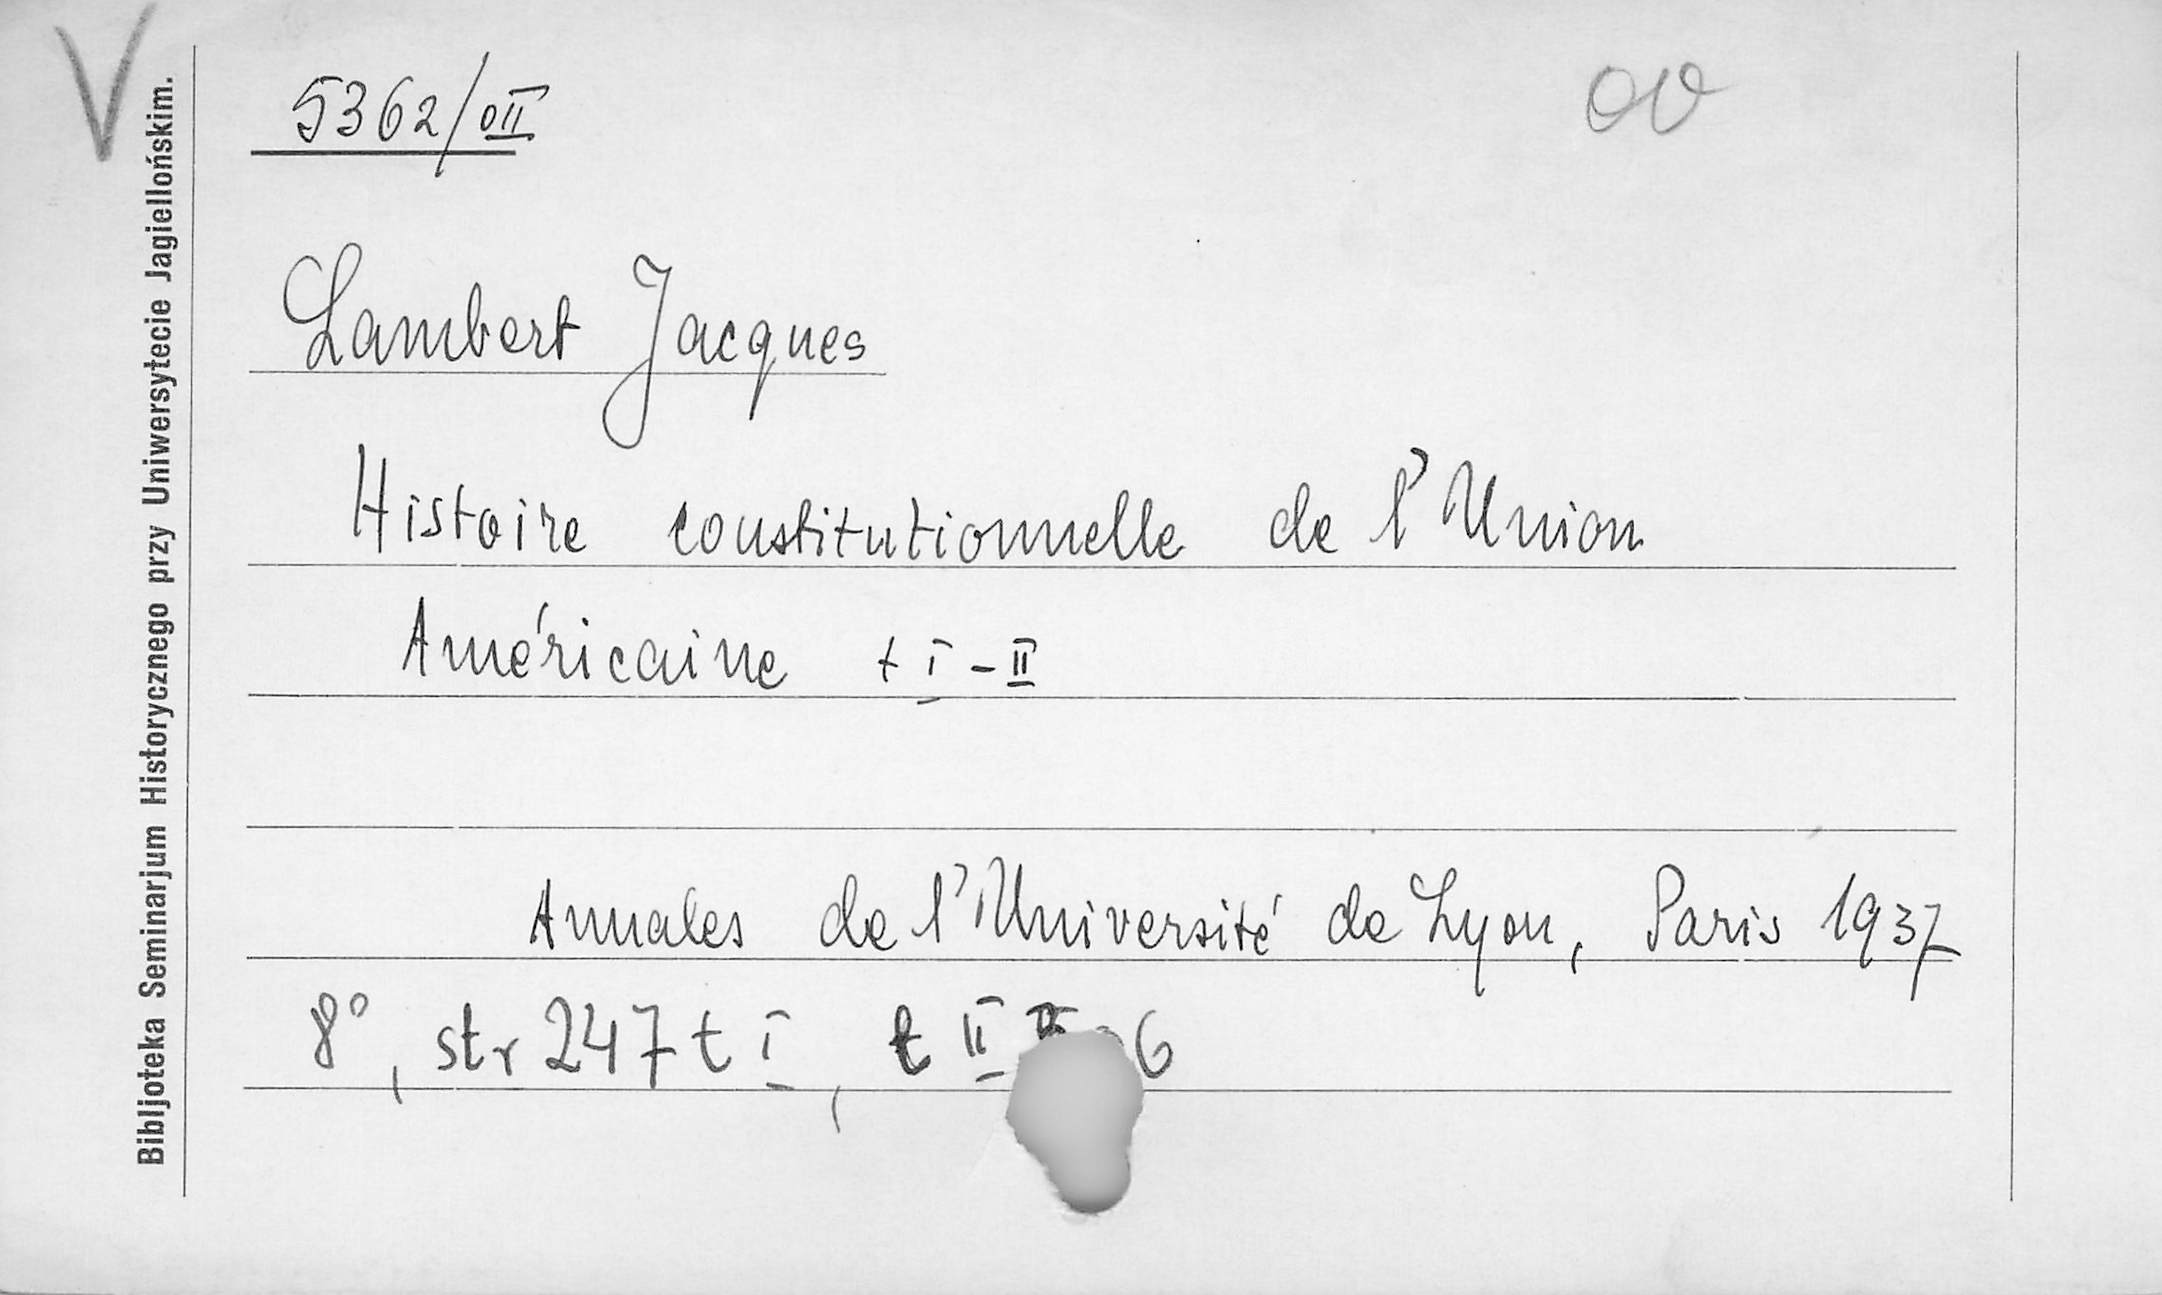 V
5362/oII
ov
Lambert Jacques
Histoire constitutionnelle de l'Union
Américaine t I - II
Annales de l'Université de Lyon, Paris 1937
8°, str 247 t I, t II
Bibljoteka Seminarjum Historycznego przy Uniwersytecie Jagiellońskim.